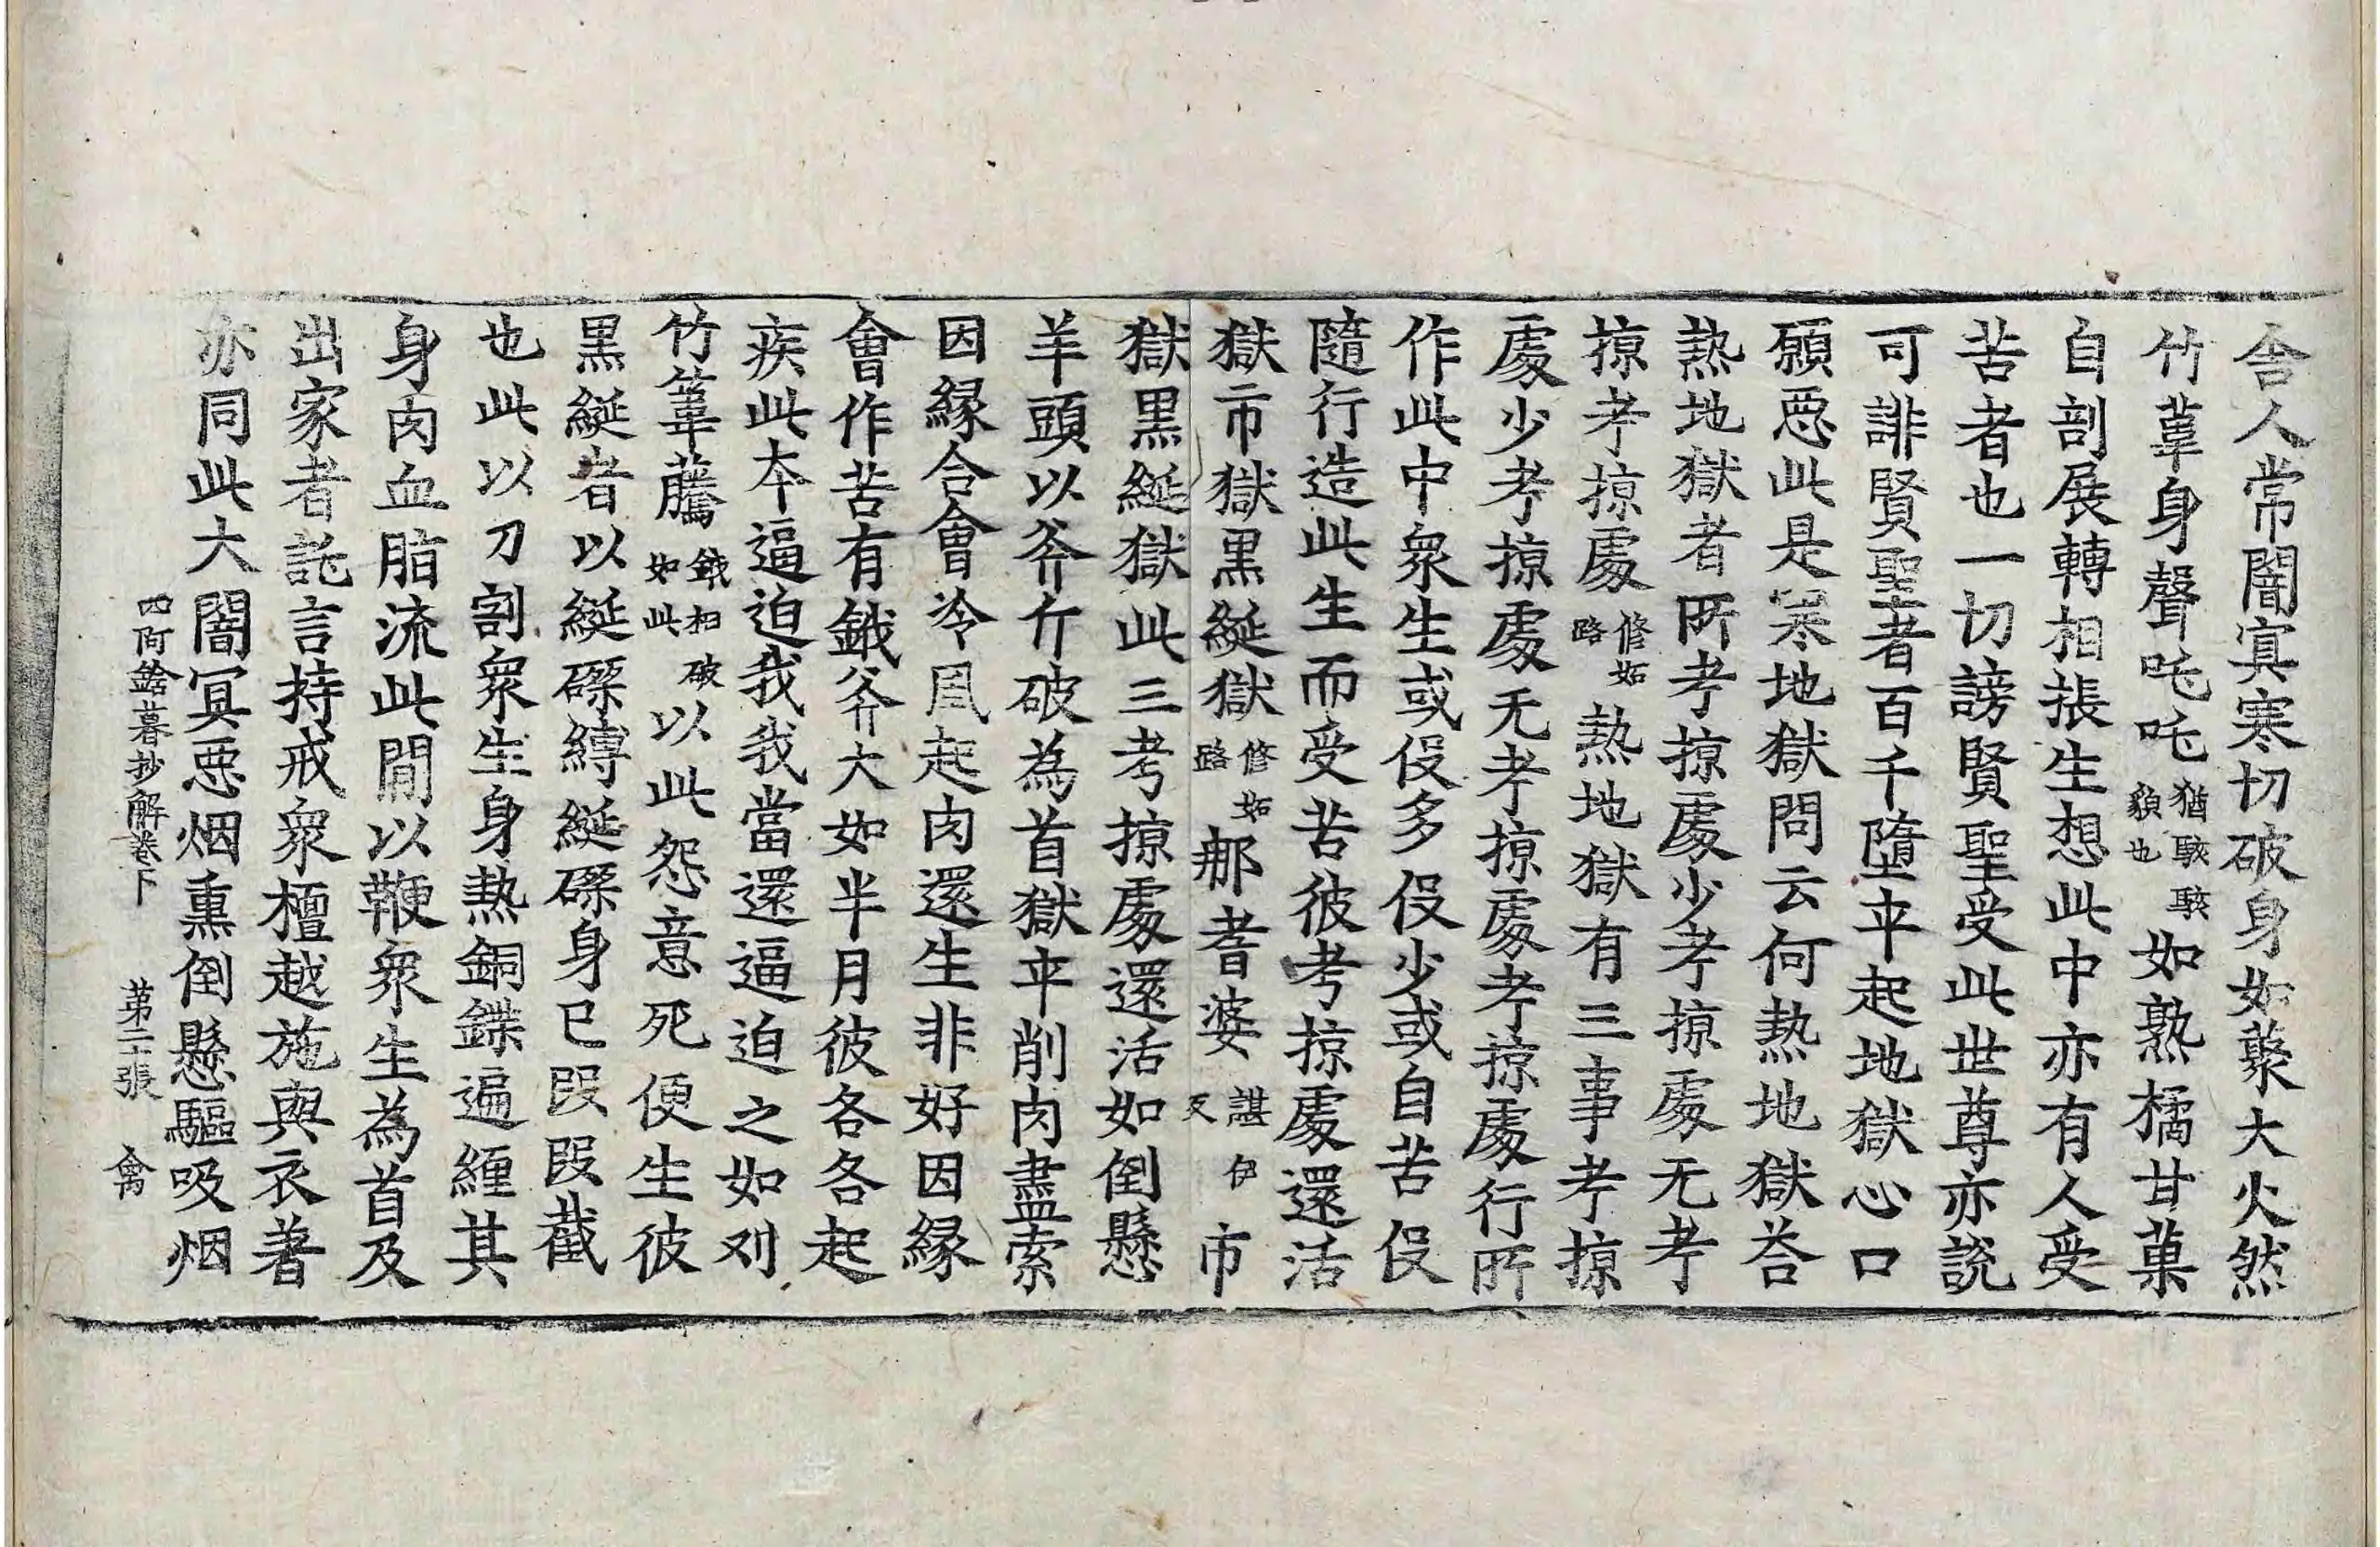 舎人常闇寘寒切破身如䔣大火然
竹葦身聲吒吒猶䮚䮚貌也如熟橘甘菓
自剖展轉相掁生想此中亦有人受
苦者也一切謗賢聖受此世尊亦說
可誹賢聖者百千墮卒起地獄心口
願惡此是寒地獄問云何熱地獄荅
熱地獄者所考掠處少考掠處无考
掠考掠處修妬路熱地獄有三事考掠
處少考掠處无考掠處考掠處行所
作此中衆生或伇多伇少或自苦伇
隨行造此生而受苦彼考掠處還活
獄市獄黒綖獄修妬路那耆婆諶伊反市
獄黒綖獄此三考掠處還活如倒懸
羊頭以斧斤破為首獄卒削肉盡索
因縁合會冷風起肉還生非好因縁
會作苦有鐵斧大如半月彼各各起
疾此本逼迫我我當還逼迫之如刈
竹葦騰鐵相破如此以此怨意死便生彼
黒綖者以綖磔縛綖磔身已段段截
也此以刀割衆生身熱銅鍱遍纏其
身肉血脂流此間以鞭衆生為首及
出家者訑言持戒衆檀越施與衣著
亦同此大闇冥惡烟熏倒懸驅吸烟
四阿鋡暮抄解卷下 第二十張 禽